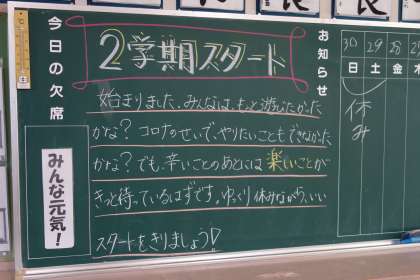 今日の欠席
みんな元気！
2学期スタート
始まりました。みんなは、もっと遊びたかった
かな？コロナのせいで、やりたいこともできなかった
かな？でも、辛いことのあとには楽しいことが
きっと待っているはずです。ゆっくり休みながら、いい
スタートをきりましょう！
お知らせ
30 29 28 2
日 土 金 木
休み